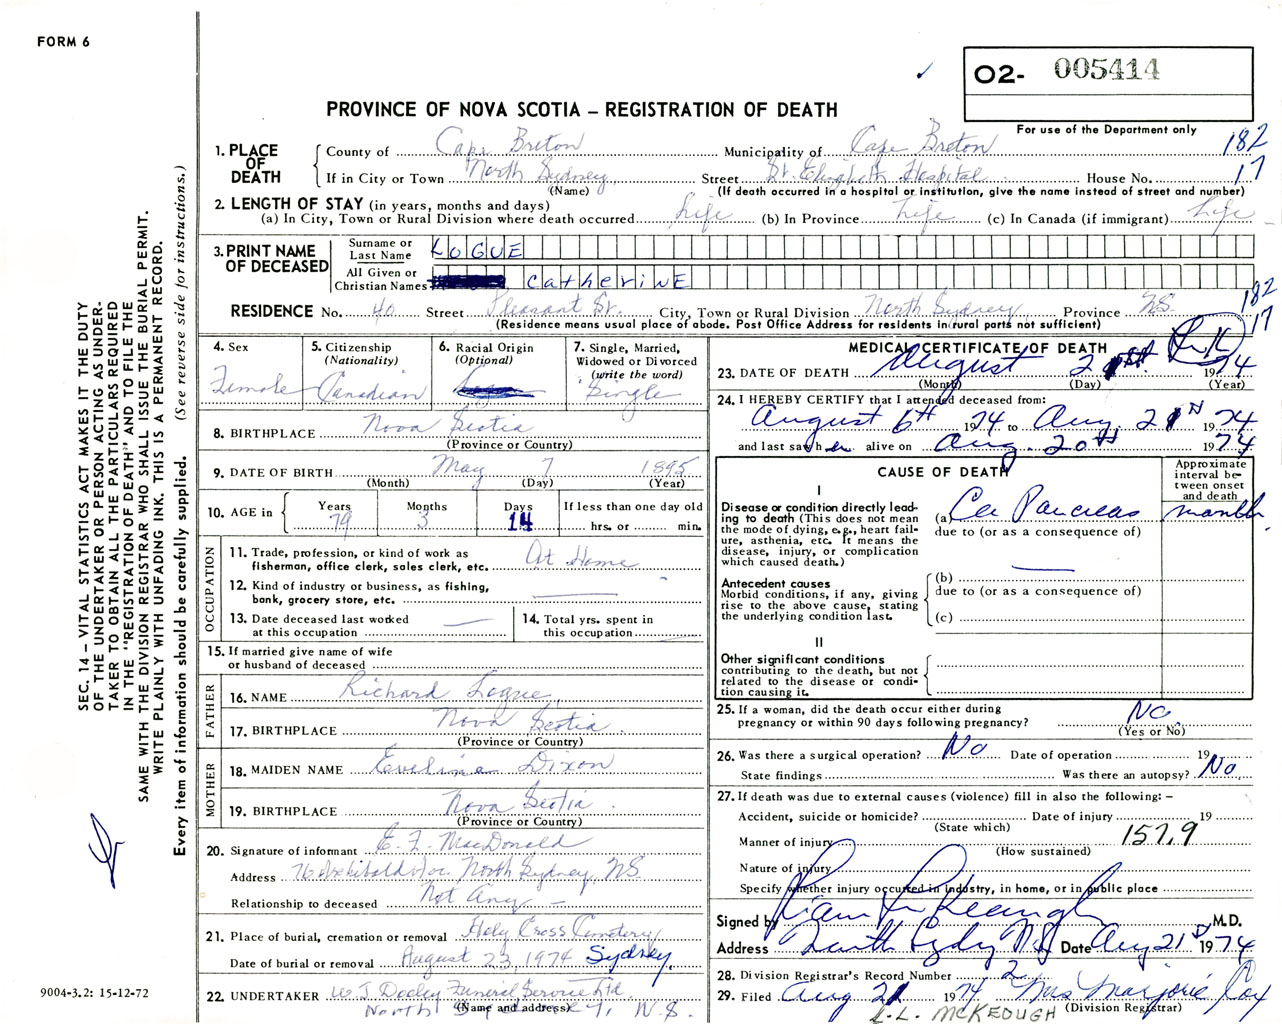 FORM 6
O2- 005414
PROVINCE OF NOVA SCOTIA – REGISTRATION OF DEATH
For use of the Department only
182
17
1. PLACE OF DEATH
County of Cape Breton Municipality of Cape Breton
If in City or Town North Sydney Street St. Elizabeth Hospital House No.
(Name) (If death occurred in a hospital or institution, give the name instead of street and number)
2. LENGTH OF STAY (in years, months and days)
(a) In City, Town or Rural Division where death occurred Life (b) In Province Life (c) In Canada (if immigrant) Life
3. PRINT NAME OF DECEASED
Surname or Last Name LOGUE
All Given or Christian Names CatheriNE
RESIDENCE No. 40 Street Pleasant St. City, Town or Rural Division North Sydney Province N.S.
(Residence means usual place of abode. Post Office Address for residents in rural parts not sufficient)
182
17
4. Sex
Female
5. Citizenship
(Nationality)
Canadian
6. Racial Origin
(Optional)
7. Single, Married, Widowed or Divorced
(write the word)
Single
8. BIRTHPLACE Nova Scotia
(Province or Country)
9. DATE OF BIRTH May 7 1895
(Month) (Day) (Year)
10. AGE in
Years Months Days If less than one day old
79 3 14 hrs. or min.
OCCUPATION
11. Trade, profession, or kind of work as
fisherman, office clerk, sales clerk, etc. At Home
12. Kind of industry or business, as fishing,
bank, grocery store, etc.
13. Date deceased last worked
at this occupation
14. Total yrs. spent in
this occupation
15. If married give name of wife
or husband of deceased
FATHER
16. NAME Richard Logue
17. BIRTHPLACE Nova Scotia
(Province or Country)
MOTHER
18. MAIDEN NAME Eveline Dixon
19. BIRTHPLACE Nova Scotia
(Province or Country)
20. Signature of informant E. F. MacDonald
Address 76 Archibald Ave North Sydney, NS
Relationship to deceased Not Any
21. Place of burial, cremation or removal Holy Cross Cemetery
Date of burial or removal August 23, 1974 Sydney,
22. UNDERTAKER W J Dooley Funeral Service Ltd
(Name and address) North Sydney, N.S.
MEDICAL CERTIFICATE OF DEATH
23. DATE OF DEATH August 21st 1974
(Month) (Day) (Year)
24. I HEREBY CERTIFY that I attended deceased from:
August 6th 1974 to Aug. 21 1974
and last saw her alive on Aug. 20th 1974
CAUSE OF DEATH
Approximate interval between onset and death
I
Disease or condition directly leading to death (This does not mean the mode of dying, e.g., heart failure, asthenia, etc. It means the disease, injury, or complication which caused death.)
(a) Ca Pancreas month
due to (or as a consequence of)
Antecedent causes
Morbid conditions, if any, giving rise to the above cause, stating the underlying condition last.
(b)
due to (or as a consequence of)
(c)
II
Other significant conditions
contributing to the death, but not related to the disease or condition causing it.
25. If a woman, did the death occur either during
pregnancy or within 90 days following pregnancy? No.
(Yes or No)
26. Was there a surgical operation? No Date of operation 19
State findings Was there an autopsy? No
27. If death was due to external causes (violence) fill in also the following: –
Accident, suicide or homicide? Date of injury 19
(State which)
Manner of injury 157.9
(How sustained)
Nature of injury
Specify whether injury occurred in industry, in home, or in public place
Signed by M.D.
Address North Sydney N.S. Date Aug 21 1974
28. Division Registrar's Record Number 2
29. Filed Aug 21 1974 Mrs Marjorie Cox
(Division Registrar)
L.L. McKEOUGH
SEC. 14 – VITAL STATISTICS ACT MAKES IT THE DUTY
OF THE UNDERTAKER OR PERSON ACTING AS UNDER-
TAKER TO OBTAIN ALL THE PARTICULARS REQUIRED
IN THE "REGISTRATION OF DEATH" AND TO FILE THE
SAME WITH THE DIVISION REGISTRAR WHO SHALL ISSUE THE BURIAL PERMIT.
WRITE PLAINLY WITH UNFADING INK. THIS IS A PERMANENT RECORD.
Every item of information should be carefully supplied. (See reverse side for instructions.)
9004-3.2: 15-12-72